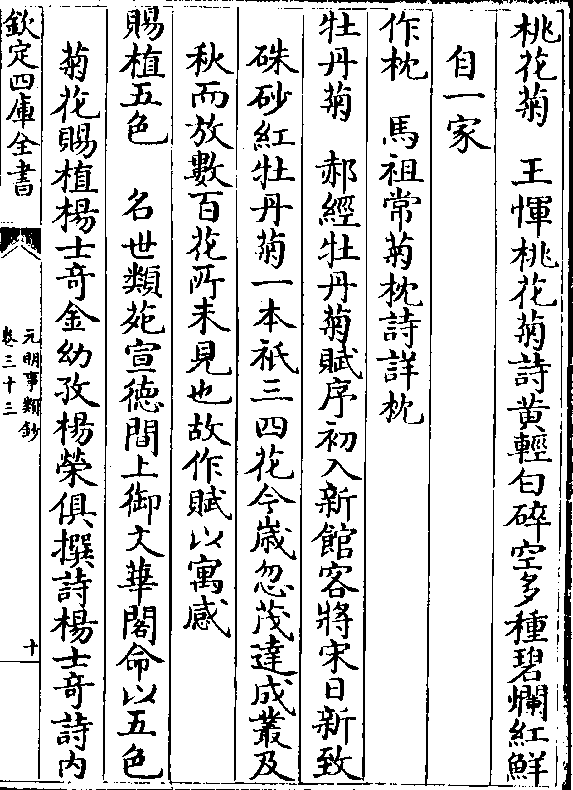 桃花菊　王惲桃花菊詩黄輕白碎空多種碧爛紅鮮
自一家
作枕　馬祖常菊枕詩詳枕
牡丹菊　郝經牡丹菊賦序初入新館客將宋日新致
硃砂紅牡丹菊一本祇三四花今歳忽茂達成叢及
秋而放數百花所未見也故作賦以寓感
賜植五色　名世類苑宣德間上御文華閣命以五色
菊花賜植楊士奇金幼孜楊榮俱撰詩楊士奇詩内
欽定四庫全書
元明事類鈔
卷三十三
十